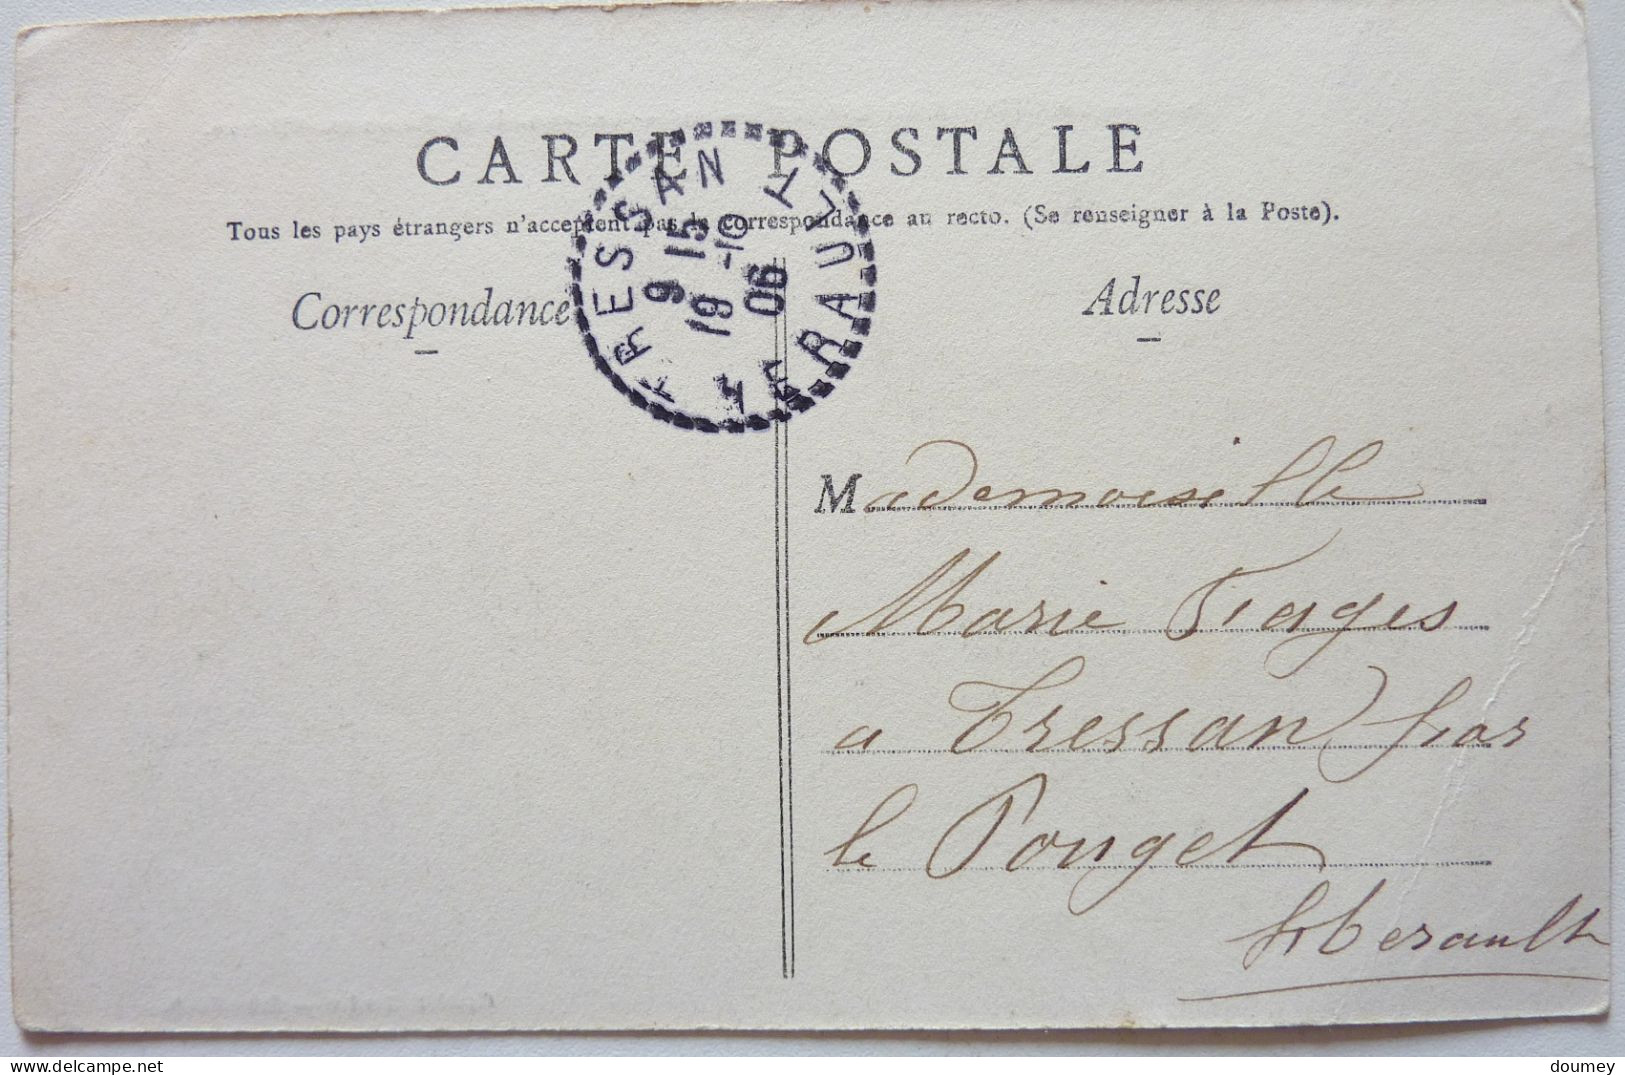 CARTE POSTALE
Tous les pays étrangers n'acceptent pas la correspondance au recto. (Se renseigner à la Poste).
Correspondance
Adresse
TRESSAN
9 15
19 -10
06
HERAULT
Mademoiselle
Marie Fages
a Tressan par
le Pouget
Herault
delcampe.net
doumey